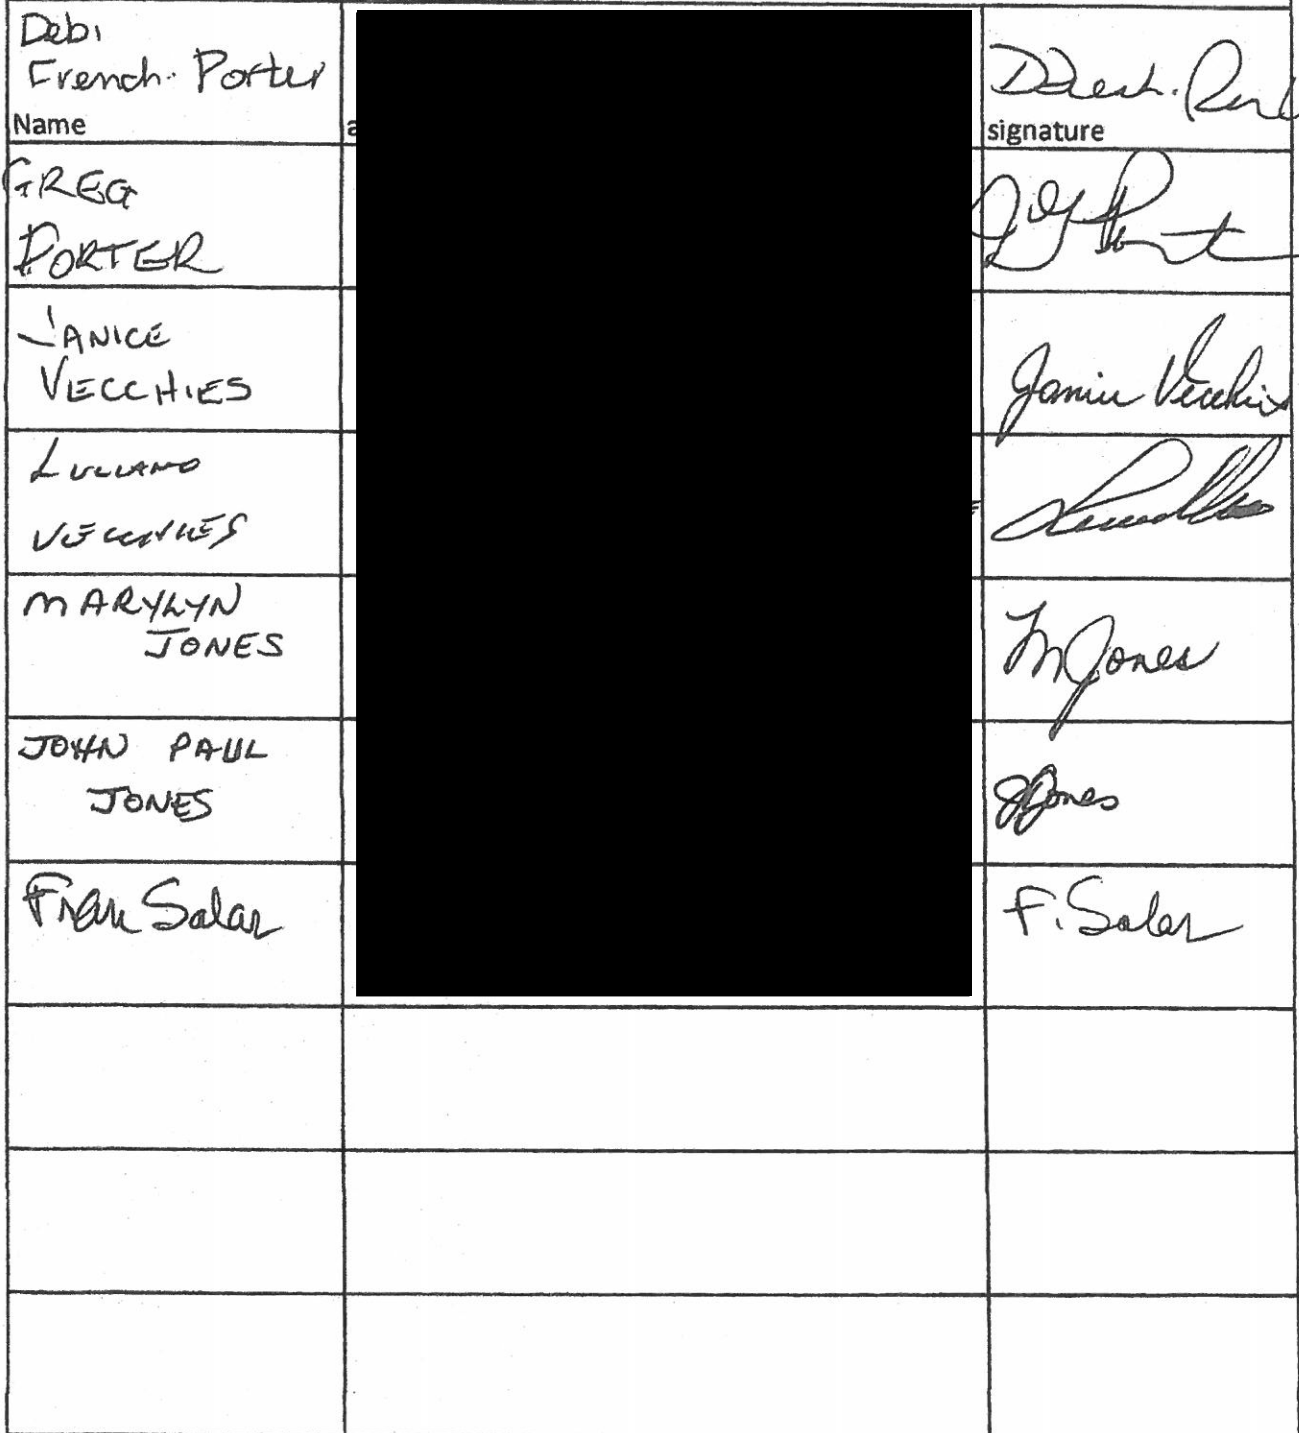 Debi
French-Porter
Name
a
signature
GREG
PORTER
JANICE
VECCHIES
Janice Vecchies
LUCIANO
VECCHIES
MARYLYN
JONES
M Jones
JOHN PAUL
JONES
JPJones
Fran Salar
F. Salar